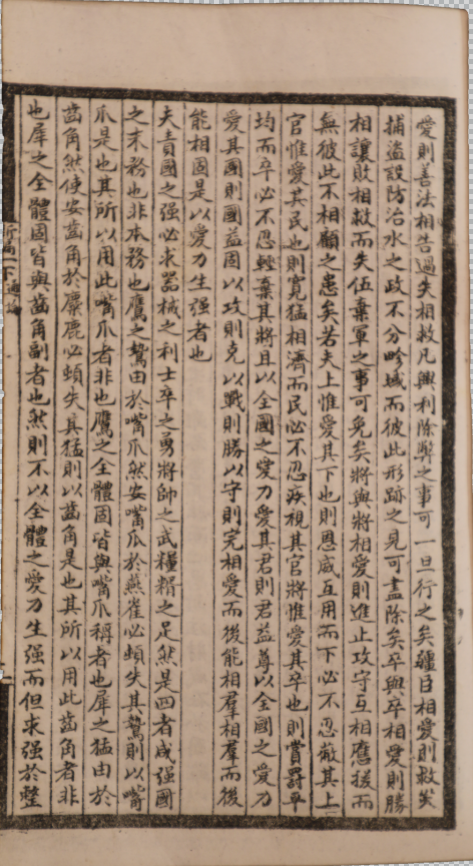 愛則善法相告過失相救凡興利除弊之事可一旦行之矣疆臣相愛則救災
捕盜設防治水之政不分畛域而彼此形跡之見可盡除矣卒與卒相愛則勝
相讓敗相救而失伍棄軍之事可免矣將與將相愛則進止攻守互相應援而
無彼此不相顧之患矣若夫上惟愛其下也則恩威互用而下必不忍欺其上
官惟愛其民也則寬猛相濟而民必不忍疾視其官將惟愛其卒也則賞罰平
均而卒必不忍輕棄其將且以全國之愛力愛其君則君益尊以全國之愛力
愛其國則國益固以攻則克以戰則勝以守則完相愛而後能相羣相羣而後
能相固是以愛力生强者也
夫責國之强必求器械之利士卒之勇將帥之武糧糈之足然是四者咸强國
之末務也非本務也鷹之鷙由於嘴爪然安嘴爪於燕雀必頓失其鷙則以嘴
爪是也其所以用此嘴爪者非也鷹之全體固皆與嘴爪稱者也犀之猛由於
齒角然使安齒角於麋鹿必頓失其猛則以齒角是也其所以用此齒角者非
也犀之全體固皆與齒角副者也然則不以全體之愛力生强而但求强於整
下通論